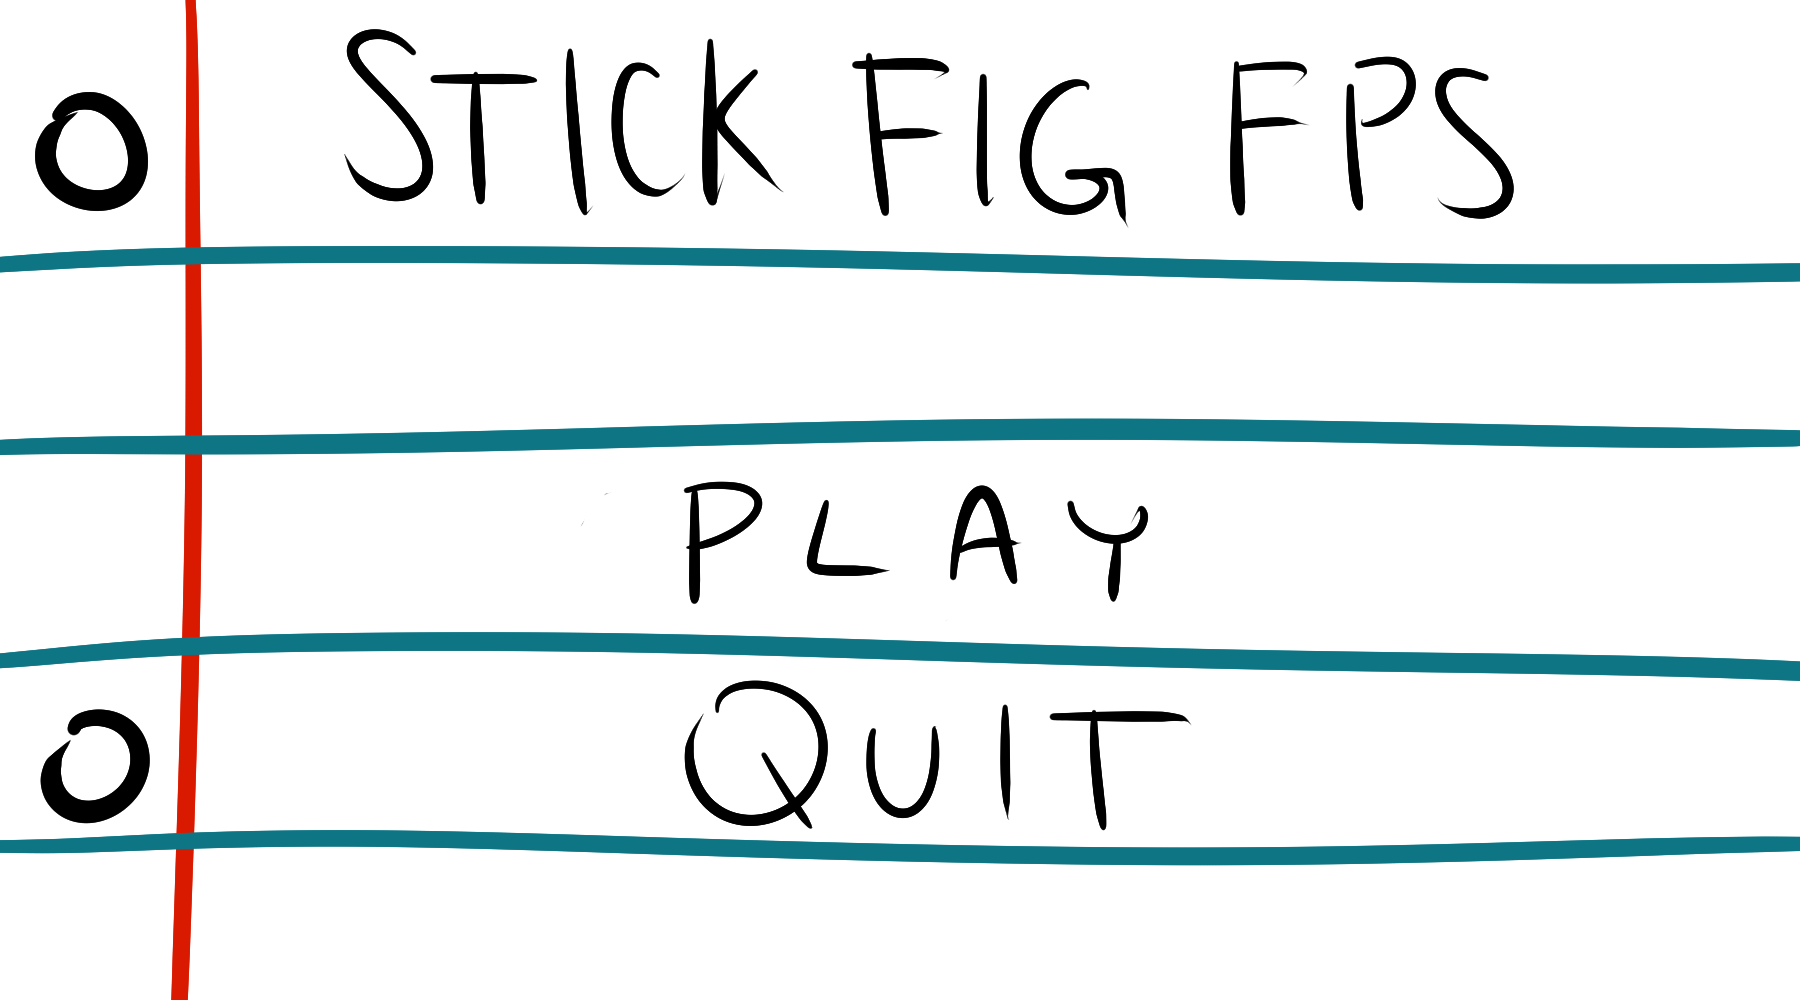 STICK FIG FPS
PLAY
QUIT